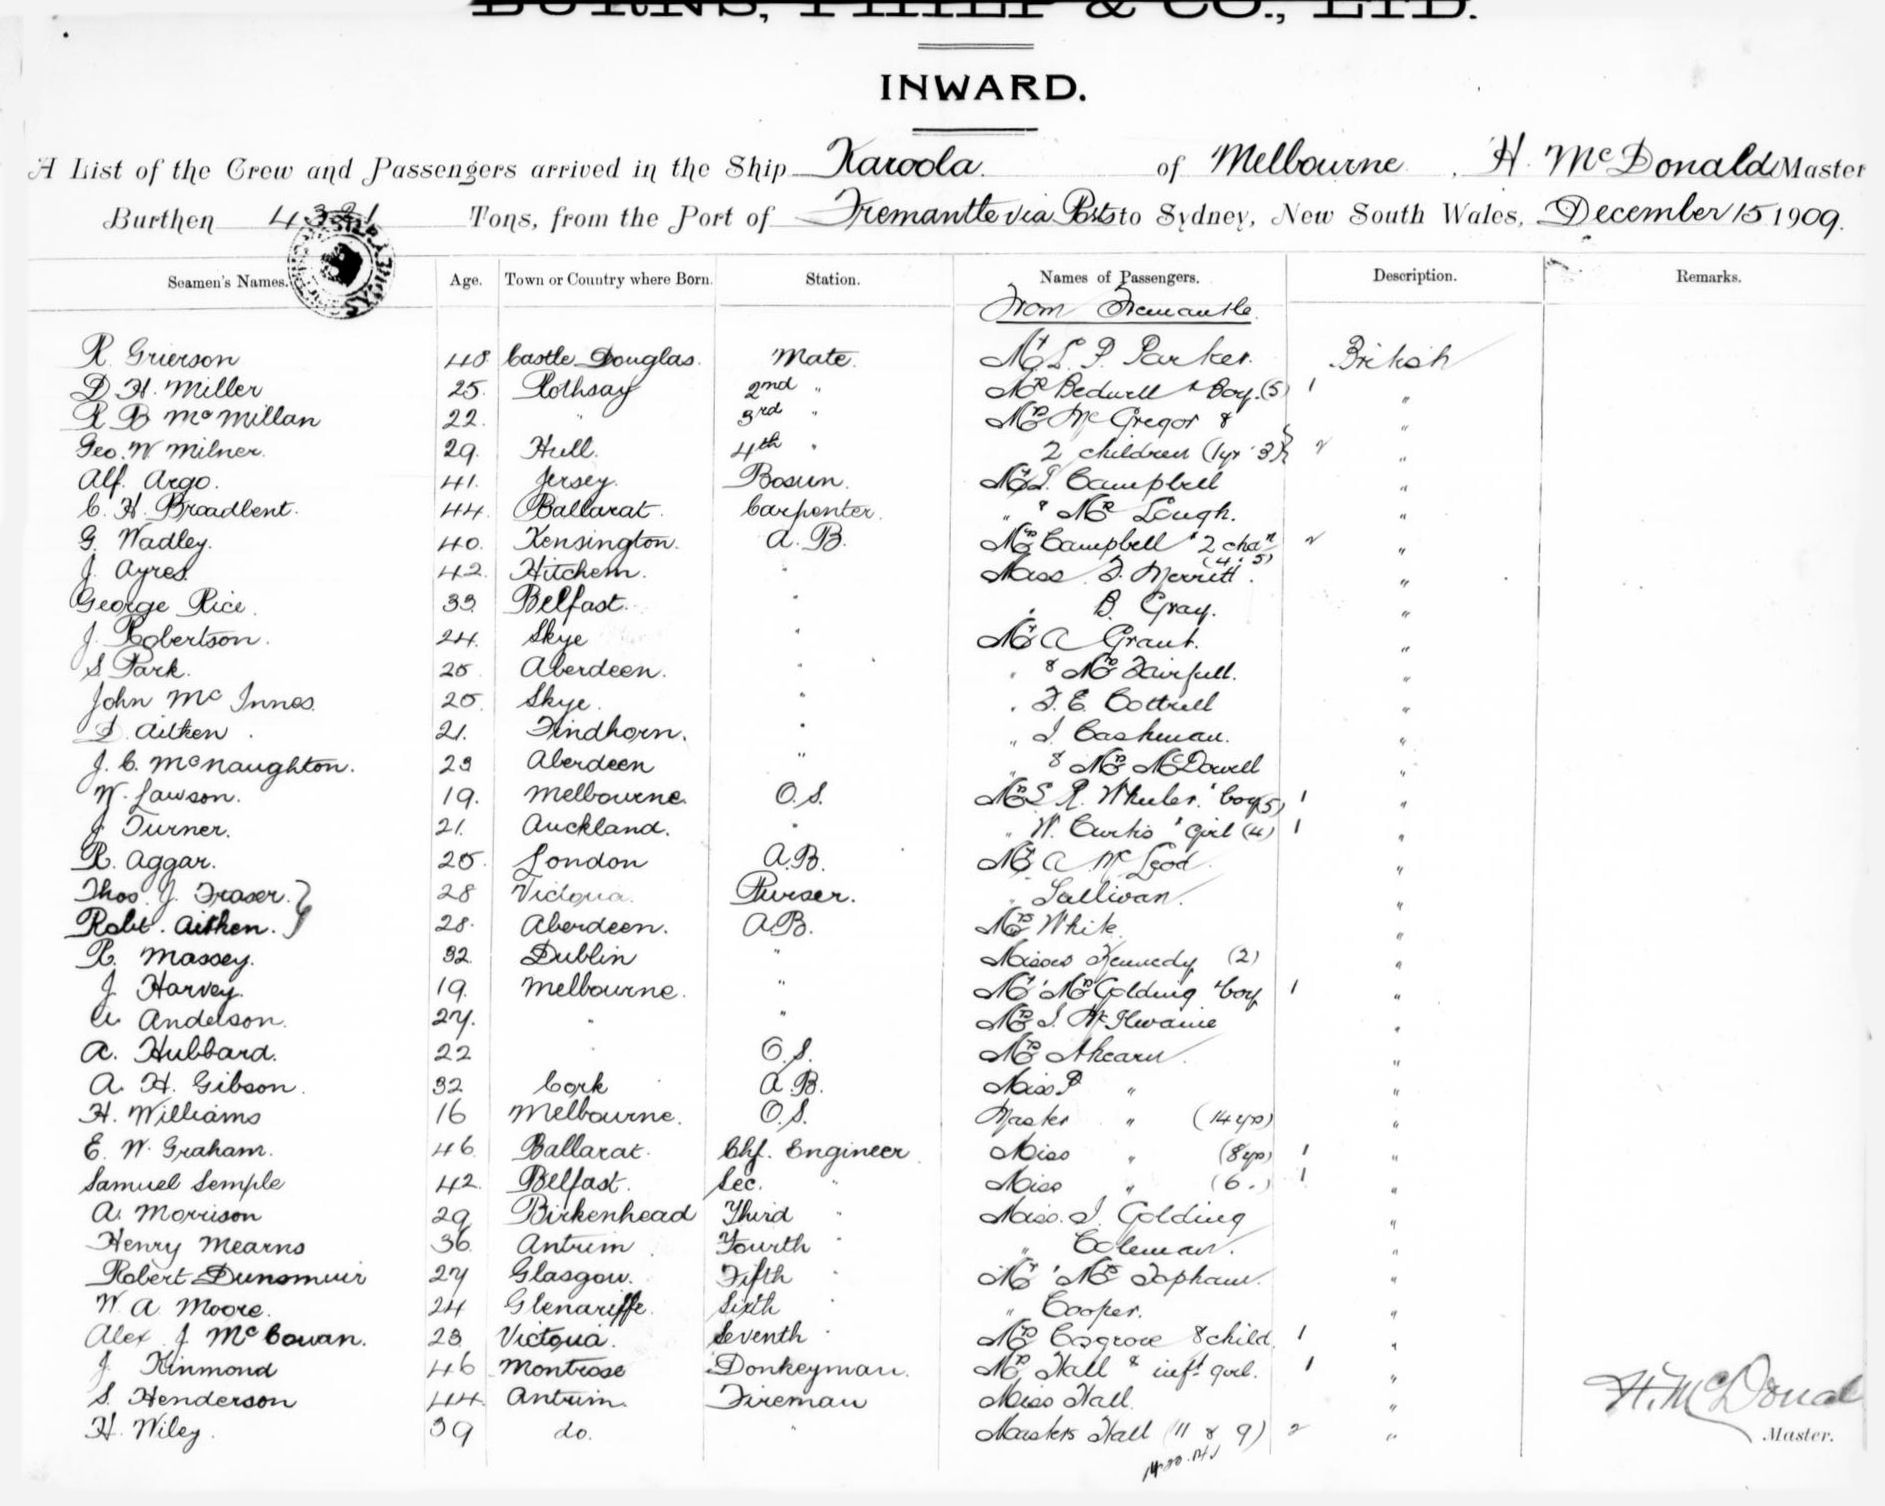 BURNS, PHILP & CO., LTD.
INWARD.
A List of the Crew and Passengers arrived in the Ship Karoola. of Melbourne, H. McDonald Master
Burthen 4391 Tons, from the Port of Fremantle via Ports to Sydney, New South Wales, December 15 1909.
Seamen's Names. Age. Town or Country where Born. Station. Names of Passengers. Description. Remarks.
From Fremantle.
R Grierson 48 Castle Douglas. Mate. Mr L. P. Parker. British
D. H. Miller 25. Rothsay 2nd " Mrs Bedwell & Boy. (5) 1 "
R B McMillan 22. " 3rd " Mrs McGregor & "
Geo. W Milner. 29. Hull. 4th " 2 children (1yr 3) 2 "
Alf. Argo. 41. Jersey. Bosun. Mr J. Campbell "
C. H. Broadbent. 44. Ballarat. Carpenter. " & Mrs Lough. "
G. Wadley. 40. Kensington. A. B. Mrs Campbell & 2 chdn (4 & 5) 2 "
J. Ayres. 42. Hitchem. " Miss F. Merritt. "
George Rice. 33. Belfast. " " B. Gray. "
J. Robertson. 24. Skye " Mr A Grant. "
S Park. 25. Aberdeen. " " & Mrs Fairfull. "
John McInnes. 25. Skye. " " F. E. Cottrell "
D. Aitken. 21. Findhorn. " " J. Cashman. "
J. C. McNaughton. 23 Aberdeen " " & Mrs McDowell "
W. Lawson. 19. Melbourne. O. S. Mrs S R. Wheeler & boy (5) 1 "
J Turner. 21. Auckland. " " W. Curtis & girl (4) 1 "
R. Aggar. 25. London A. B. Mr A McLeod. "
Thos. J. Fraser. 28 Victoria. Purser. " Sullivan. "
Robt. Aitken. 28. Aberdeen. A. B. Mrs White. "
R. Massey. 32. Dublin " Misses Kennedy (2) "
J Harvey. 19. Melbourne. " Mr & Mrs Golding & boy 1 "
A. Anderson. 27. " " Mrs J. McIlwaine "
A. Hubbard. 22 " O. S. Mrs Ahearn. "
A. H. Gibson. 32 Cork A. B. Miss P " "
H. Williams 16 Melbourne. O. S. Master " (14 yrs) "
E. W. Graham. 46. Ballarat. Chf. Engineer Miss " (8 yrs) 1 "
Samuel Semple 42. Belfast. Sec. " Miss " (6 ") 1 "
A. Morrison 29 Birkenhead Third " Miss. J. Golding "
Henry Mearns 36. Antrim Fourth " " Coleman. "
Robert Dunsmuir 27 Glasgow. Fifth " Mr & Mrs Topham. "
W. A Moore. 24 Glenariffe. Sixth " " Cooper. "
Alex J. McCowan. 23. Victoria. Seventh " Mrs Cosgrove & child. 1 "
J. Kinmond 46 Montrose Donkeyman. Mrs Hall & inft girl. 1 "
S. Henderson 44. Antrim. Fireman Miss Hall. "
H. Wiley. 39 do. " Masters Hall (11 & 9) 2 "
H. McDonald
Master.